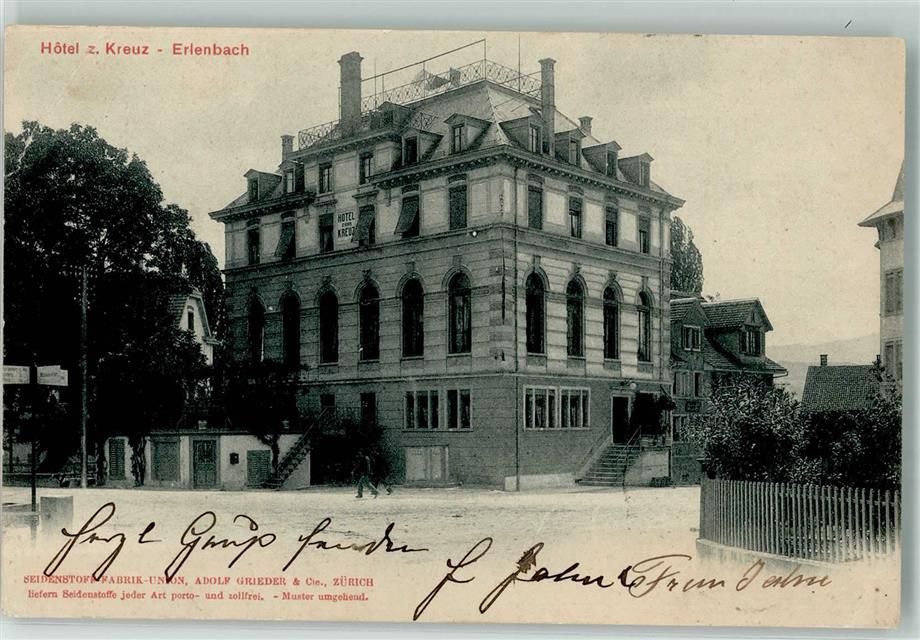 Hôtel z. Kreuz - Erlenbach
HOTEL
ZUM
KREUZ
herzl Gruss senden
SEIDENSTOFF-FABRIK-UNION, ADOLF GRIEDER & Cie., ZÜRICH
liefern Seidenstoffe jeder Art porto- und zollfrei. - Muster umgehend.